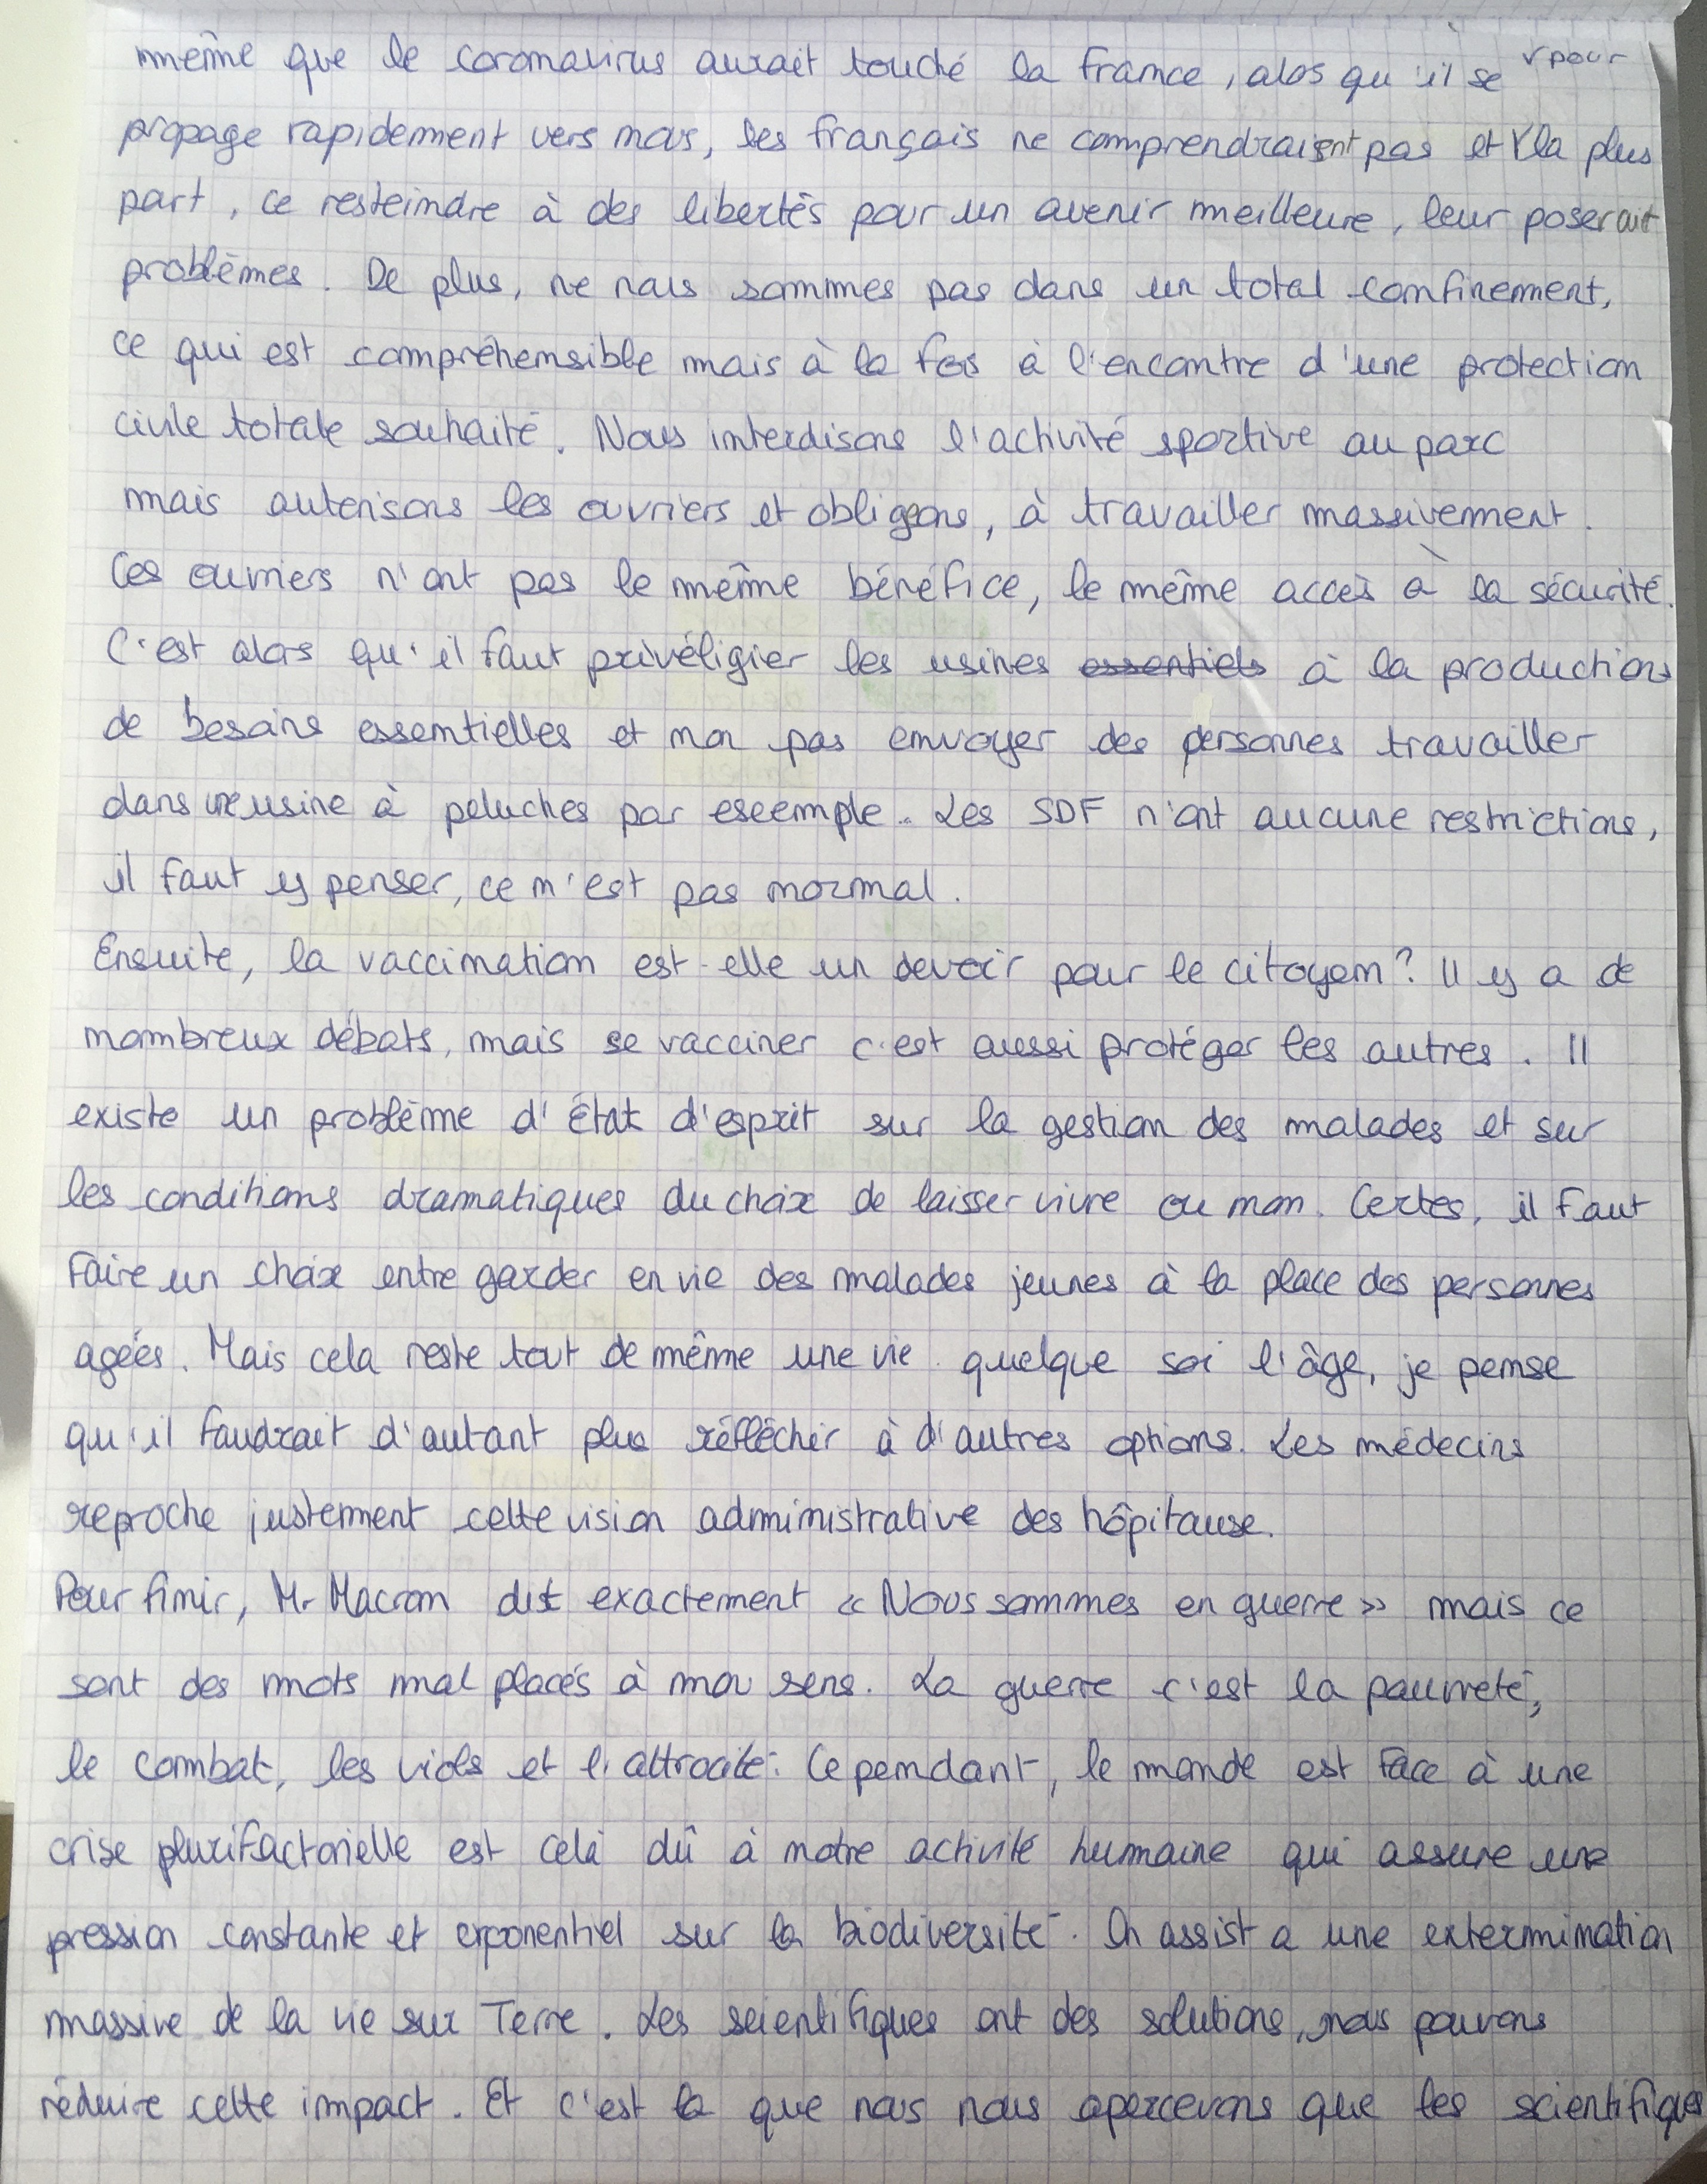 même que le coronavirus aurait touché la france, alos qu'il se
propage rapidement vers nous, les français ne comprendraient pas et √pour la plus
part, ce resteindre à des libertés pour un avenir meilleure, leur poserait
problèmes. De plus, ne nous sommes pas dans un total confinement,
ce qui est compréhensible mais à la fois à l'encontre d'une protection
civile totale souhaité. Nous interdisons l'activité sportive au parc
mais autorisons les ouvriers et obligeons, à travailler massivement.
Ces ouvriers n'ont pas le même bénéfice, le même accès à la sécurité.
C'est alors qu'il faut privéligier les usines essentiels à la productions
de besoins essentielles et non pas envoyer des personnes travailler
dans une usine à peluches par exemple. Les SDF n'ont aucune restrictions,
il faut y penser, ce n'est pas normal.
Ensuite, la vaccination est-elle un devoir pour le citoyen? Il y a de
nombreux débats, mais se vacciner c'est aussi protéger les autres. Il
existe un problème d'État d'esprit sur la gestion des malades et sur
les conditions dramatiques du choix de laisser vivre ou non. Certes, il faut
faire un choix entre garder en vie des malades jeunes à la place des personnes
agées. Mais cela reste tout de même une vie quelque soi l'âge, je pense
qu'il faudrait d'autant plus réfléchir à d'autres options. Les médecins
reproche justement cette vision administrative des hôpitaux.
Pour finir, Mr Macron dit exactement « Nous sommes en guerre » mais ce
sont des mots mal placés à mon sens. La guerre c'est la pauvreté,
le combat, les viols et l'attrocité. Cependant, le monde est face à une
crise plurifactorielle est celà dû à notre activité humaine qui assure une
pression constante et exponentiel sur la biodiversité. On assist a une extermination
massive de la vie sur Terre. Les scientifiques ont des solutions, nous pouvons
réduire cette impact. Et c'est là que nous nous apercevons que les scientifiques